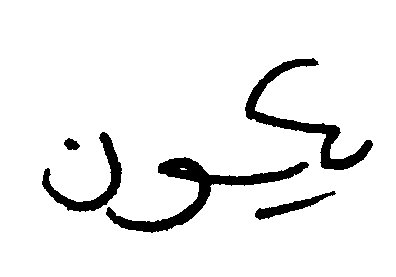 يكون